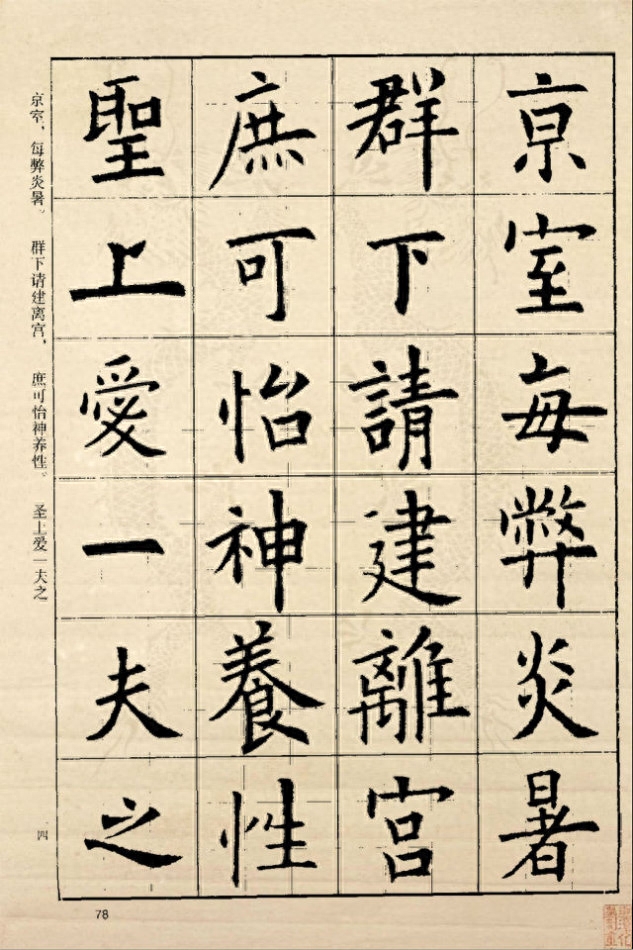 京室每弊炎暑
群下請建離宮
庶可怡神養性
聖上愛一夫之
京室，每弊炎暑。 群下请建离宫， 庶可怡神养性。 圣上爱一夫之
四
78